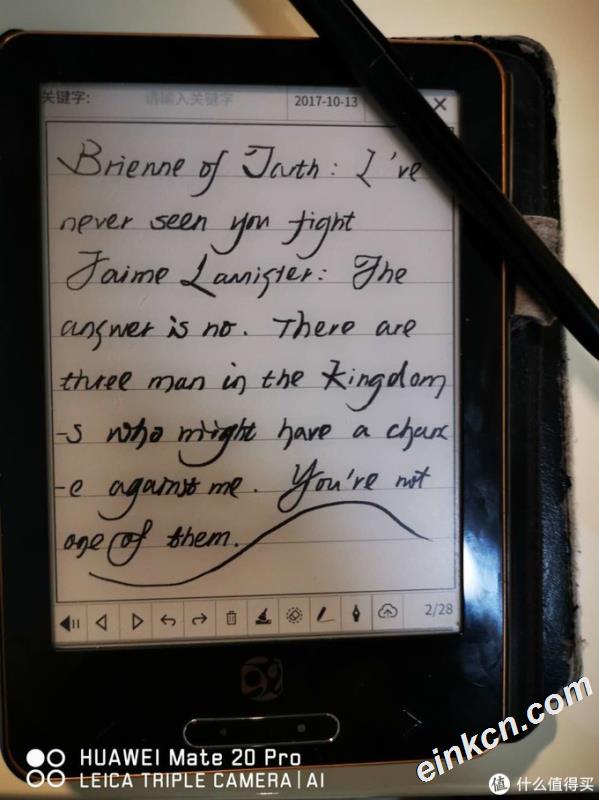 关键字: 请输入关键字 2017-10-13
Brienne of Tarth: I've
never seen you fight
Jaime Lannister: The
answer is no. There are
three man in the Kingdom
-s who might have a chanc
-e against me. You're not
one of them.
2/28
einkcn.com
HUAWEI Mate 20 Pro
LEICA TRIPLE CAMERA | AI
值 什么值得买